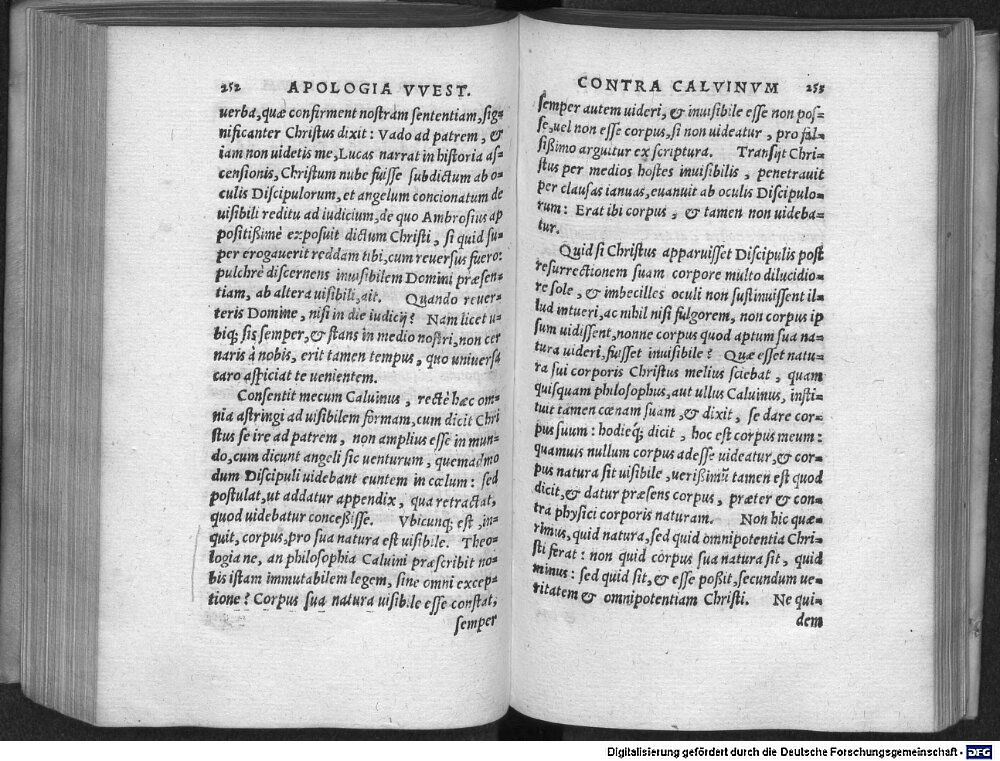 252 APOLOGIA VVEST.
uerba, quæ confirment nostram sententiam, sig-
nificanter Christus dixit: Vado ad patrem, &
iam non uidetis me, Lucas narrat in historia as-
censionis, Christum nube fuisse subdictum ab o-
culis Discipulorum, et angelum concionatum de
uisibili reditu ad iudicium, de quo Ambrosius ap
positißimè exposuit dictum Christi, si quid su-
per erogauerit reddam tibi, cum reuersus fuero:
pulchrè discernens inuisibilem Domini præsen-
tiam, ab altera uisibili, ait. Quando reuer-
teris Domine, nisi in die iudicij? Nam licet u-
biq; sis semper, & stans in medio nostri, non cer
naris à nobis, erit tamen tempus, quo uniuersa
caro aspiciat te uenientem.
Consentit mecum Caluinus, rectè hæc om-
nia astringi ad uisibilem formam, cum dicit Chri
stus se ire ad patrem, non amplius esse in mun-
do, cum dicunt angeli sic uenturum, quemadmo
dum Discipuli uidebant euntem in cœlum: sed
postulat, ut addatur appendix, qua retractat,
quod uidebatur conceßisse. Vbicunq; est, in-
quit, corpus, pro sua natura est uisibile. Theo-
logia ne, an philosophia Caluini præscribit no-
bis istam immutabilem legem, sine omni excep-
tione? Corpus sua natura uisibile esse constat,
semper
CONTRA CALVINVM 253
semper autem uideri, & inuisibile esse non pos-
se, uel non esse corpus, si non uideatur, pro fal-
sißimo arguitur ex scriptura. Transijt Chri-
stus per medios hostes inuisibilis, penetrauit
per clausas ianuas, euanuit ab oculis Discipulo-
rum: Erat ibi corpus, & tamen non uideba-
tur.
Quid si Christus apparuisset Discipulis post
resurrectionem suam corpore multo dilucidio-
re sole, & imbecilles oculi non sustinuissent il-
lud intueri, ac nihil nisi fulgorem, non corpus ip
sum uidissent, nonne corpus quod aptum sua na-
tura uideri, fuisset inuisibile? Quæ esset natu-
ra sui corporis Christus melius sciebat, quam
quisquam philosophus, aut ullus Caluinus, insti-
tuit tamen cœnam suam, & dixit, se dare cor-
pus suum: hodieq; dicit, hoc est corpus meum:
quamuis nullum corpus adesse uideatur, & cor-
pus natura sit uisibile, uerißimũ tamen est quod
dicit, & datur præsens corpus, præter & con-
tra physici corporis naturam. Non hic quæ-
rimus, quid natura, sed quid omnipotentia Chri-
sti ferat: non quid corpus sua natura sit, quid
minus: sed quid sit, & esse poßit, secundum ue-
ritatem & omnipotentiam Christi. Ne qui-
dem
Digitalisierung gefördert durch die Deutsche Forschungsgemeinschaft - DFG